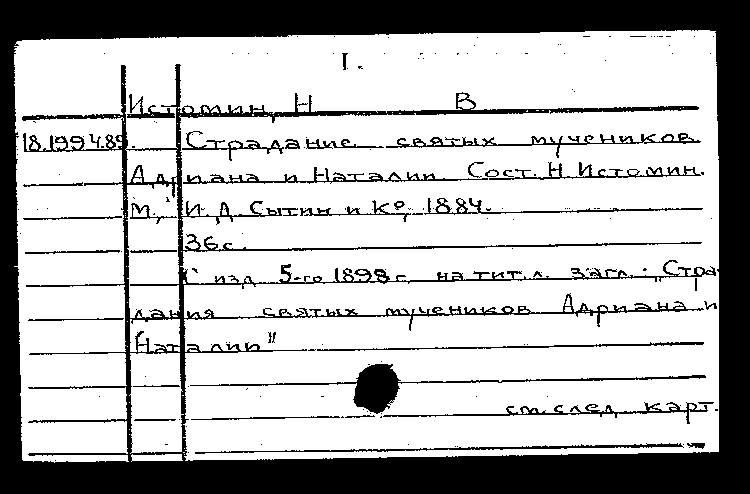 I.
Истомин, Н В
18.199 4.89. Страдание святых мучеников
Адриана и Наталии. Сост. Н. Истомин.
М., И. Д. Сытин и Ко, 1884.
36 с.
С изд. 5-го 1898 г. на тит. л. загл.: „Стра-
дания святых мучеников Адриана и
Наталии"
см. след. карт.